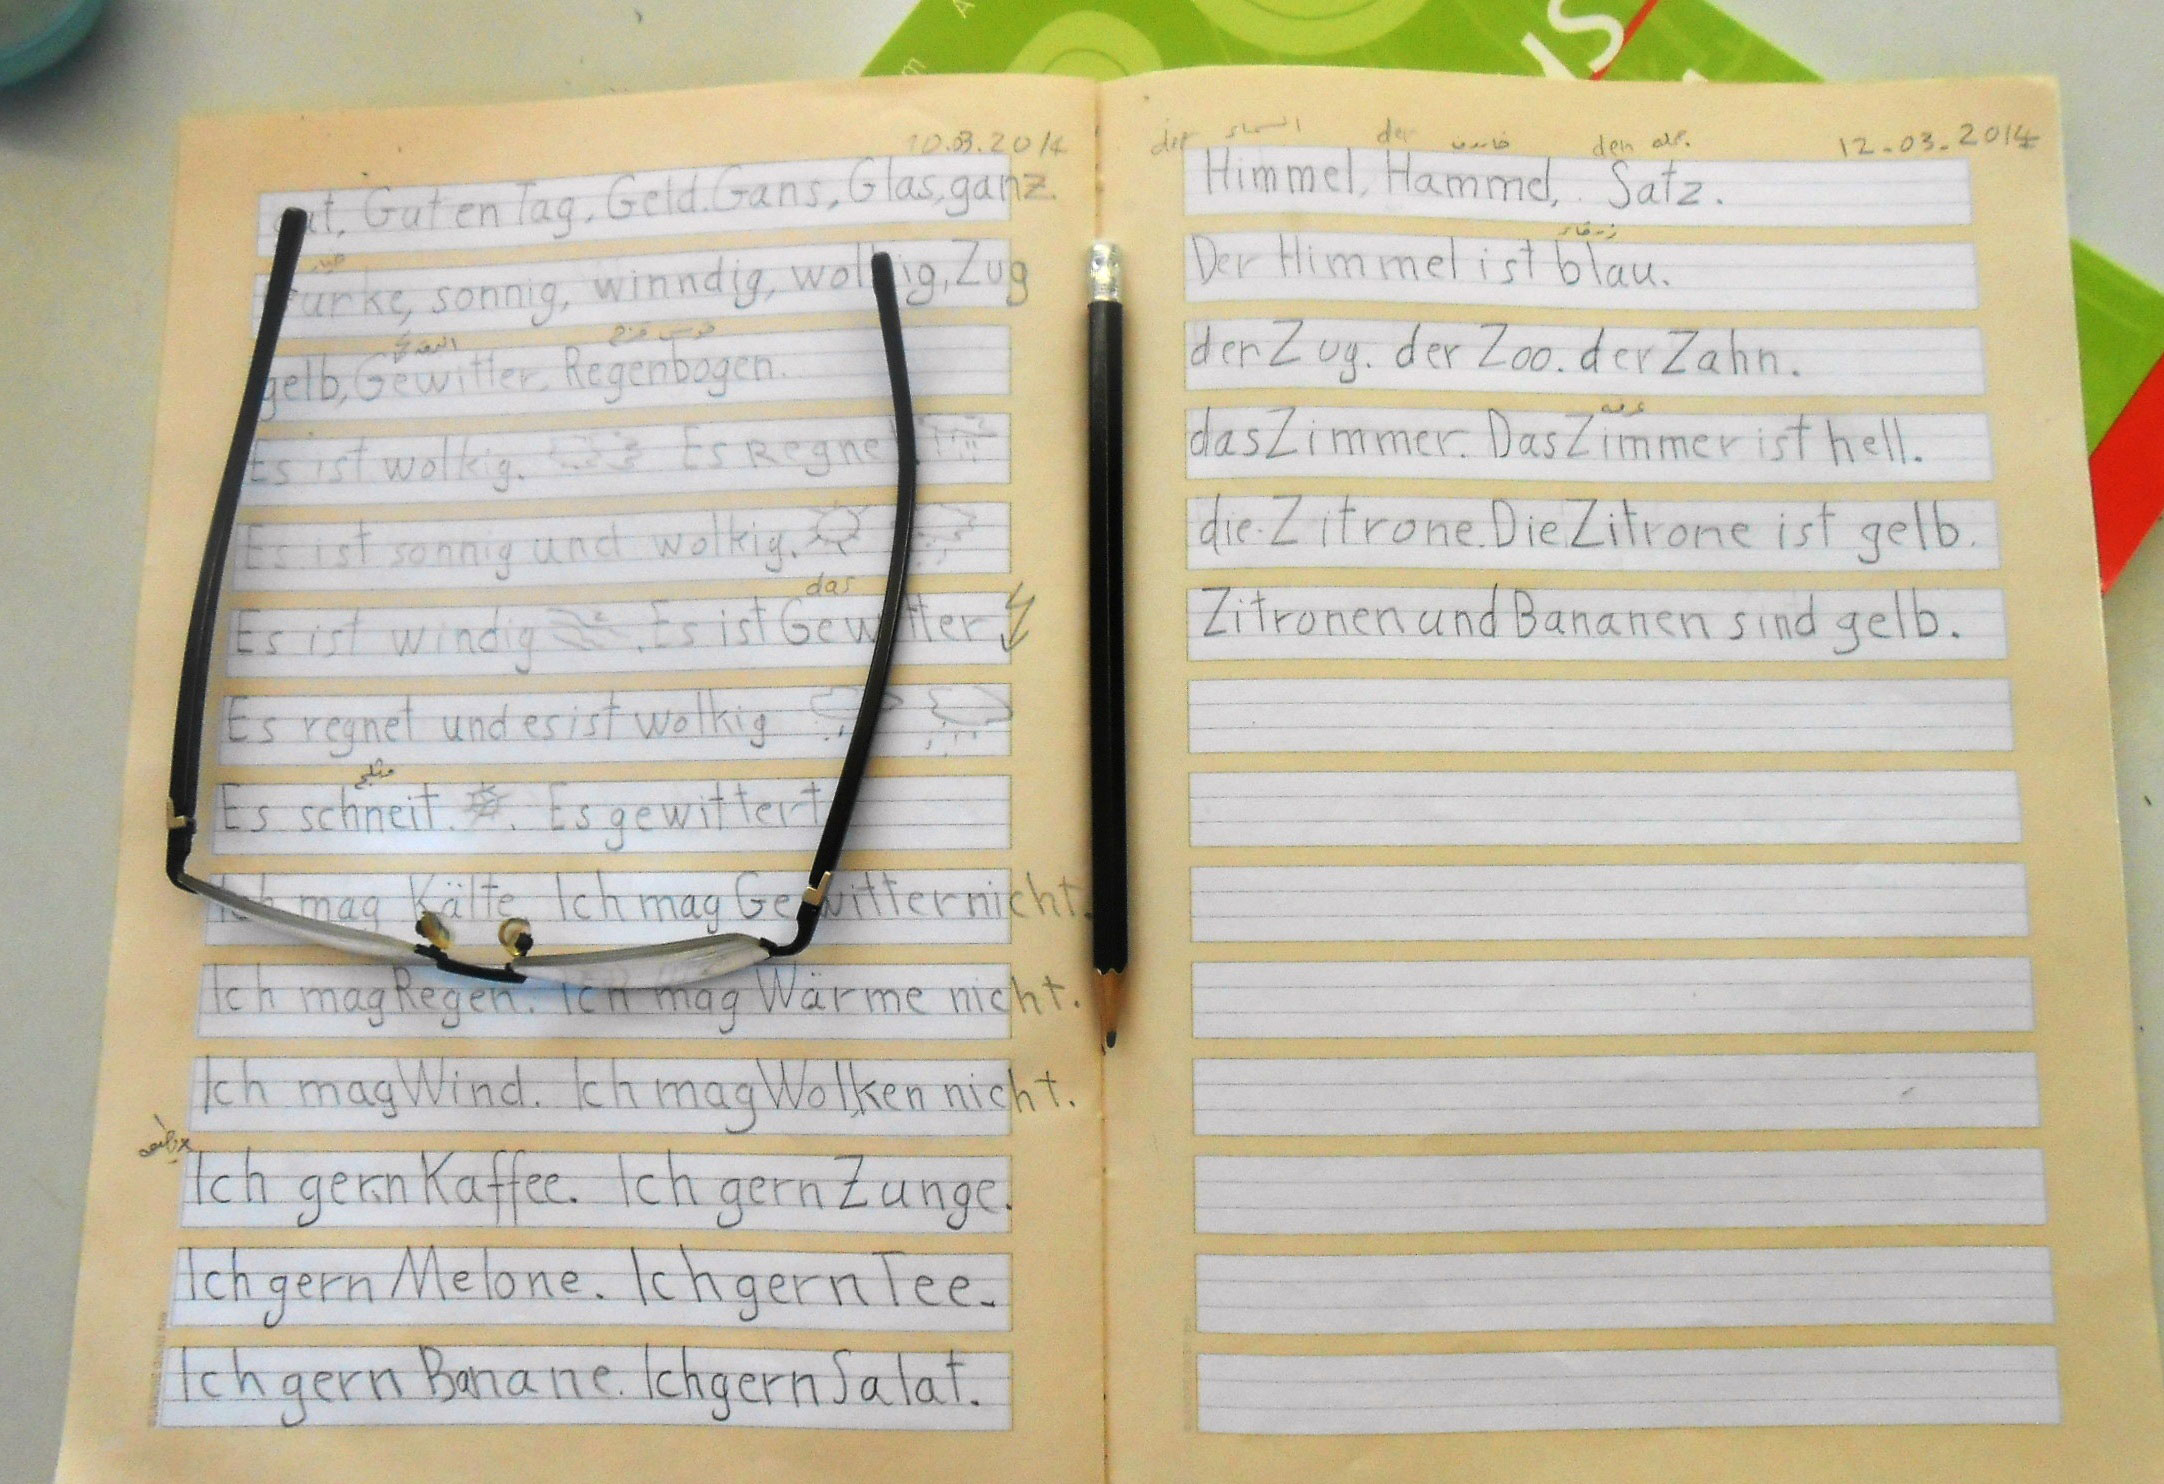 10.03.2014
gut, Guten Tag, Geld. Gans, Glas, ganz.
خيار
Gurke, sonnig, winndig, wolkig, Zug
قوس قزح
gelb, Gewitter, Regenbogen.
Es ist wolkig. Es Regnet
Es ist sonnig und wolkig.
das
Es ist windig. Es ist Gewitter
Es regnet und es ist wolkig
مثلج
Es schneit. Es gewittert
Ich mag Kälte. Ich mag Gewitter nicht.
Ich mag Regen. Ich mag Wärme nicht.
Ich mag Wind. Ich mag Wolken nicht.
Ich gern Kaffee. Ich gern Zunge.
Ich gern Melone. Ich gern Tee.
Ich gern Banane. Ich gern Salat.
der السماء der den 12.03.2014
Himmel, Hammel, Satz.
زرقاء
Der Himmel ist blau.
der Zug. der Zoo. der Zahn.
غرفة
das Zimmer. Das Zimmer ist hell.
die Zitrone. Die Zitrone ist gelb.
Zitronen und Bananen sind gelb.